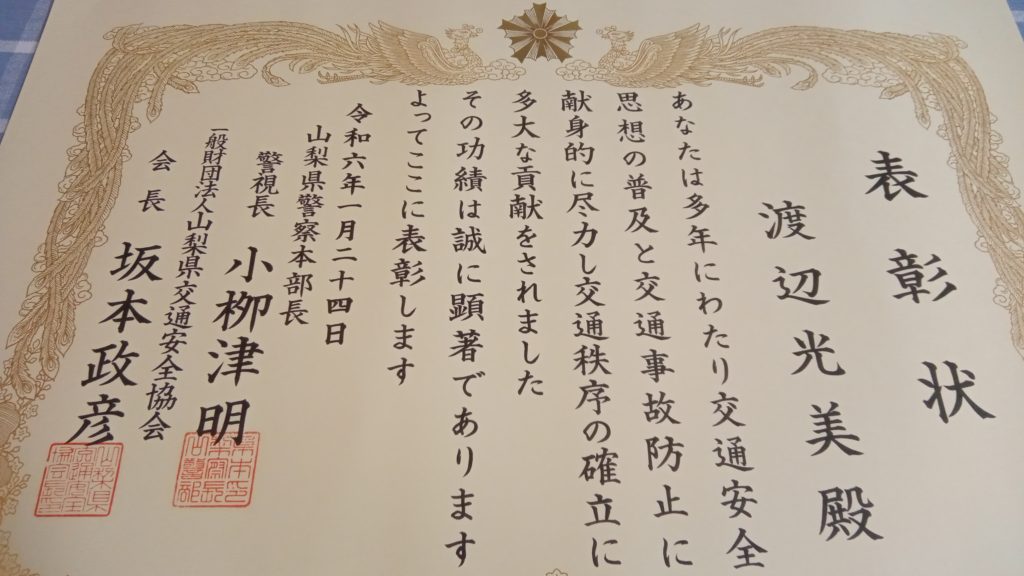 表彰状
渡辺光美殿
あなたは多年にわたり交通安全
思想の普及と交通事故防止に
献身的に尽力し交通秩序の確立に
多大な貢献をされました
その功績は誠に顕著であります
よってここに表彰します
令和六年一月二十四日
山梨県警察本部長
警視長 小柳津明
一般財団法人山梨県交通安全協会
会長 坂本政彦